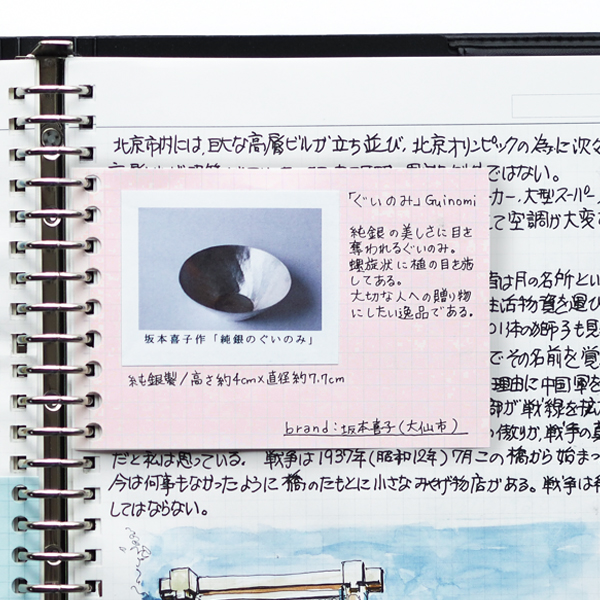 北京市内には、巨大な高層ビルが立ち並び、北京オリンピックの為に次々
ではない。
カー、大型スーパー
て空調が大変
「ぐいのみ」Guinomi
純銀の美しさに目を
奪われるぐいのみ。
螺旋状に槌の目を施
してある。
大切な人への贈り物
にしたい逸品である。
坂本喜子作「純銀のぐいのみ」
純銀製/高さ約4cm×直径約7.7cm
brand:坂本喜子(大仙市)
は月の名所とい
生活物資を運び
体の獅子も見
でその名前を覚
理由に中国軍を
部が戦線を拡
の傲りが、戦争の真
だと私は思っている。戦争は1937年(昭和12年)7月この橋から始まっ
今は何事もなかったように橋のたもとに小さなみやげ物店がある。戦争は
してはならない。